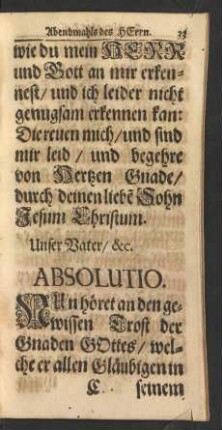 Abendmahls des HErrn. 33
wie du mein HERR
und Gott an mir erken-
nest/ und ich leider nicht
genugsam erkennen kan:
Die reuen mich/ und sind
mir leid / und begehre
von Hertzen Gnade/
durch deinen liebē Sohn
Jesum Christum.
Unser Vater/ &c.
ABSOLUTIO.
NUn höret an den ge-
wissen Trost der
Gnaden GOttes/ wel-
che er allen Gläubigen in
C seinem